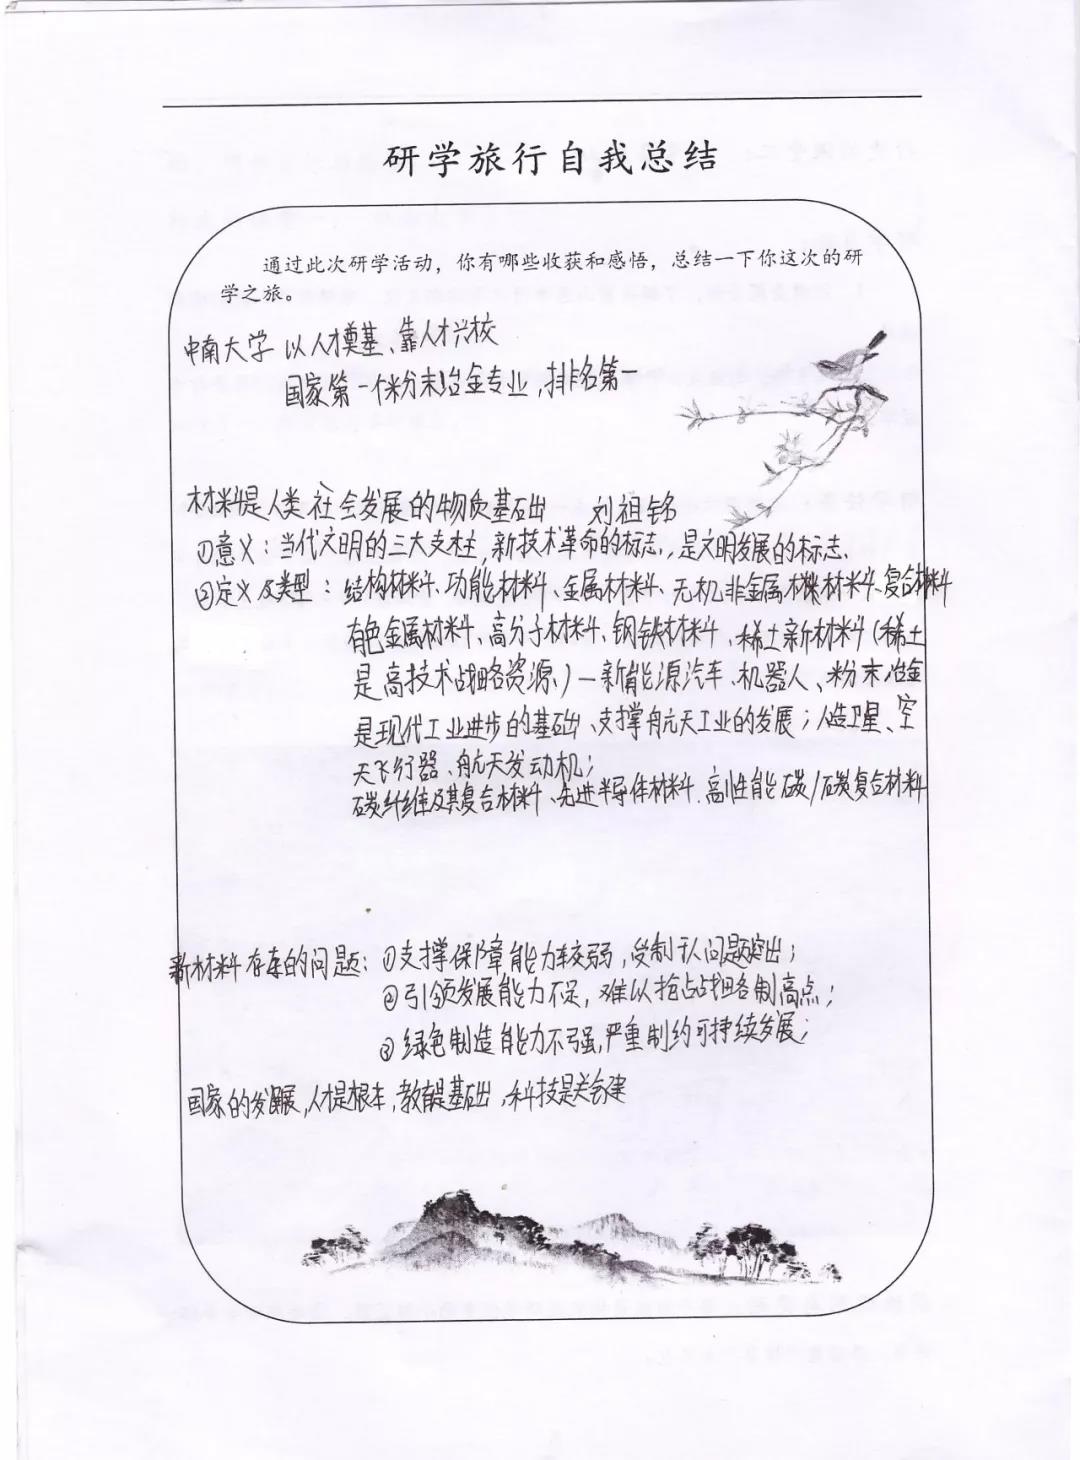 研学旅行自我总结
通过此次研学活动，你有哪些收获和感悟，总结一下你这次的研
学之旅。
中南大学 以人才奠基、靠人才兴校
国家第一个粉末冶金专业，排名第一
材料是人类社会发展的物质基础 刘祖铭
①意义：当代文明的三大支柱，新技术革命的标志，是文明发展的标志、
②定义及类型：结构材料、功能材料、金属材料、无机非金属材料、复合材料
有色金属材料、高分子材料、钢铁材料、稀土新材料（稀土
是高技术战略资源）—新能源汽车、机器人、粉末冶金
是现代工业进步的基础、支撑航天工业的发展；人造卫星、空
天飞行器、航天发动机；
碳纤维及其复合材料、先进半导体材料、高性能碳/碳复合材料
新材料存在的问题：①支撑保障能力较弱，受制于人问题突出；
②引领发展能力不足，难以抢占战略制高点；
③绿色制造能力不强，严重制约可持续发展；
国家的发展，人才是根本，教育是基础，科技是关键